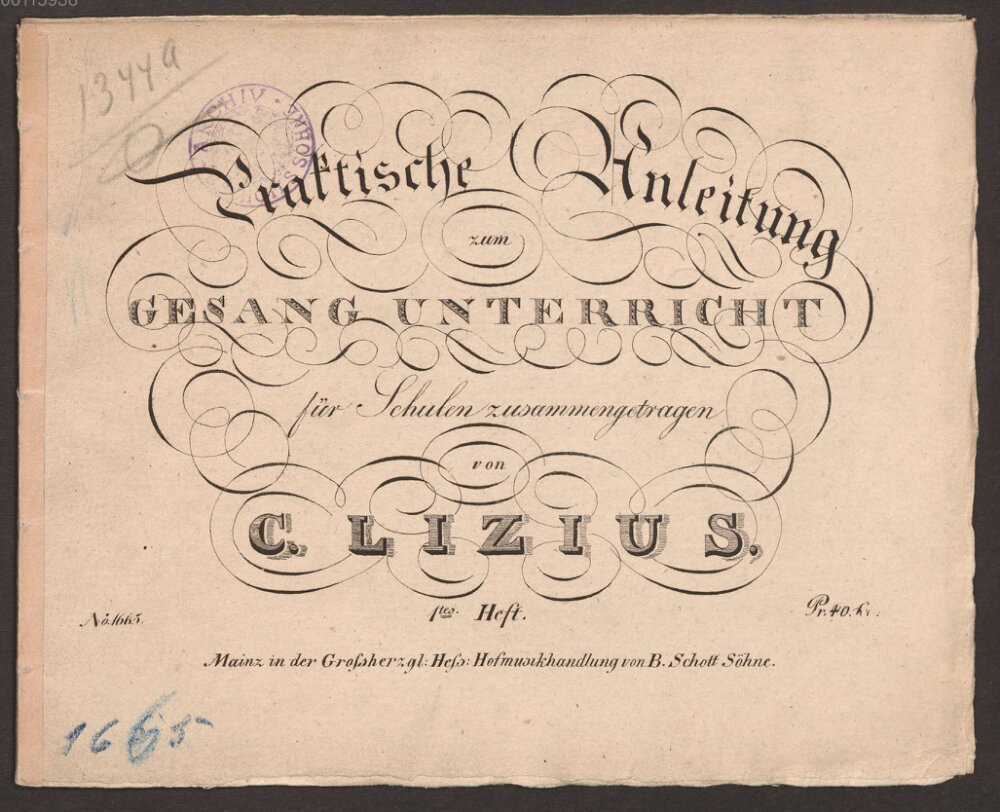 00113938
1344a
ARCHIV
Praktische Anleitung
zum
GESANG UNTERRICHT
für Schulen zusammengetragen
von
C. LIZIUS.
No. 1665.
1tes. Heft.
Pr. 40. Kr.
Mainz in der Großherzgl: Heß: Hofmusikhandlung von B. Schott Söhne.
1665